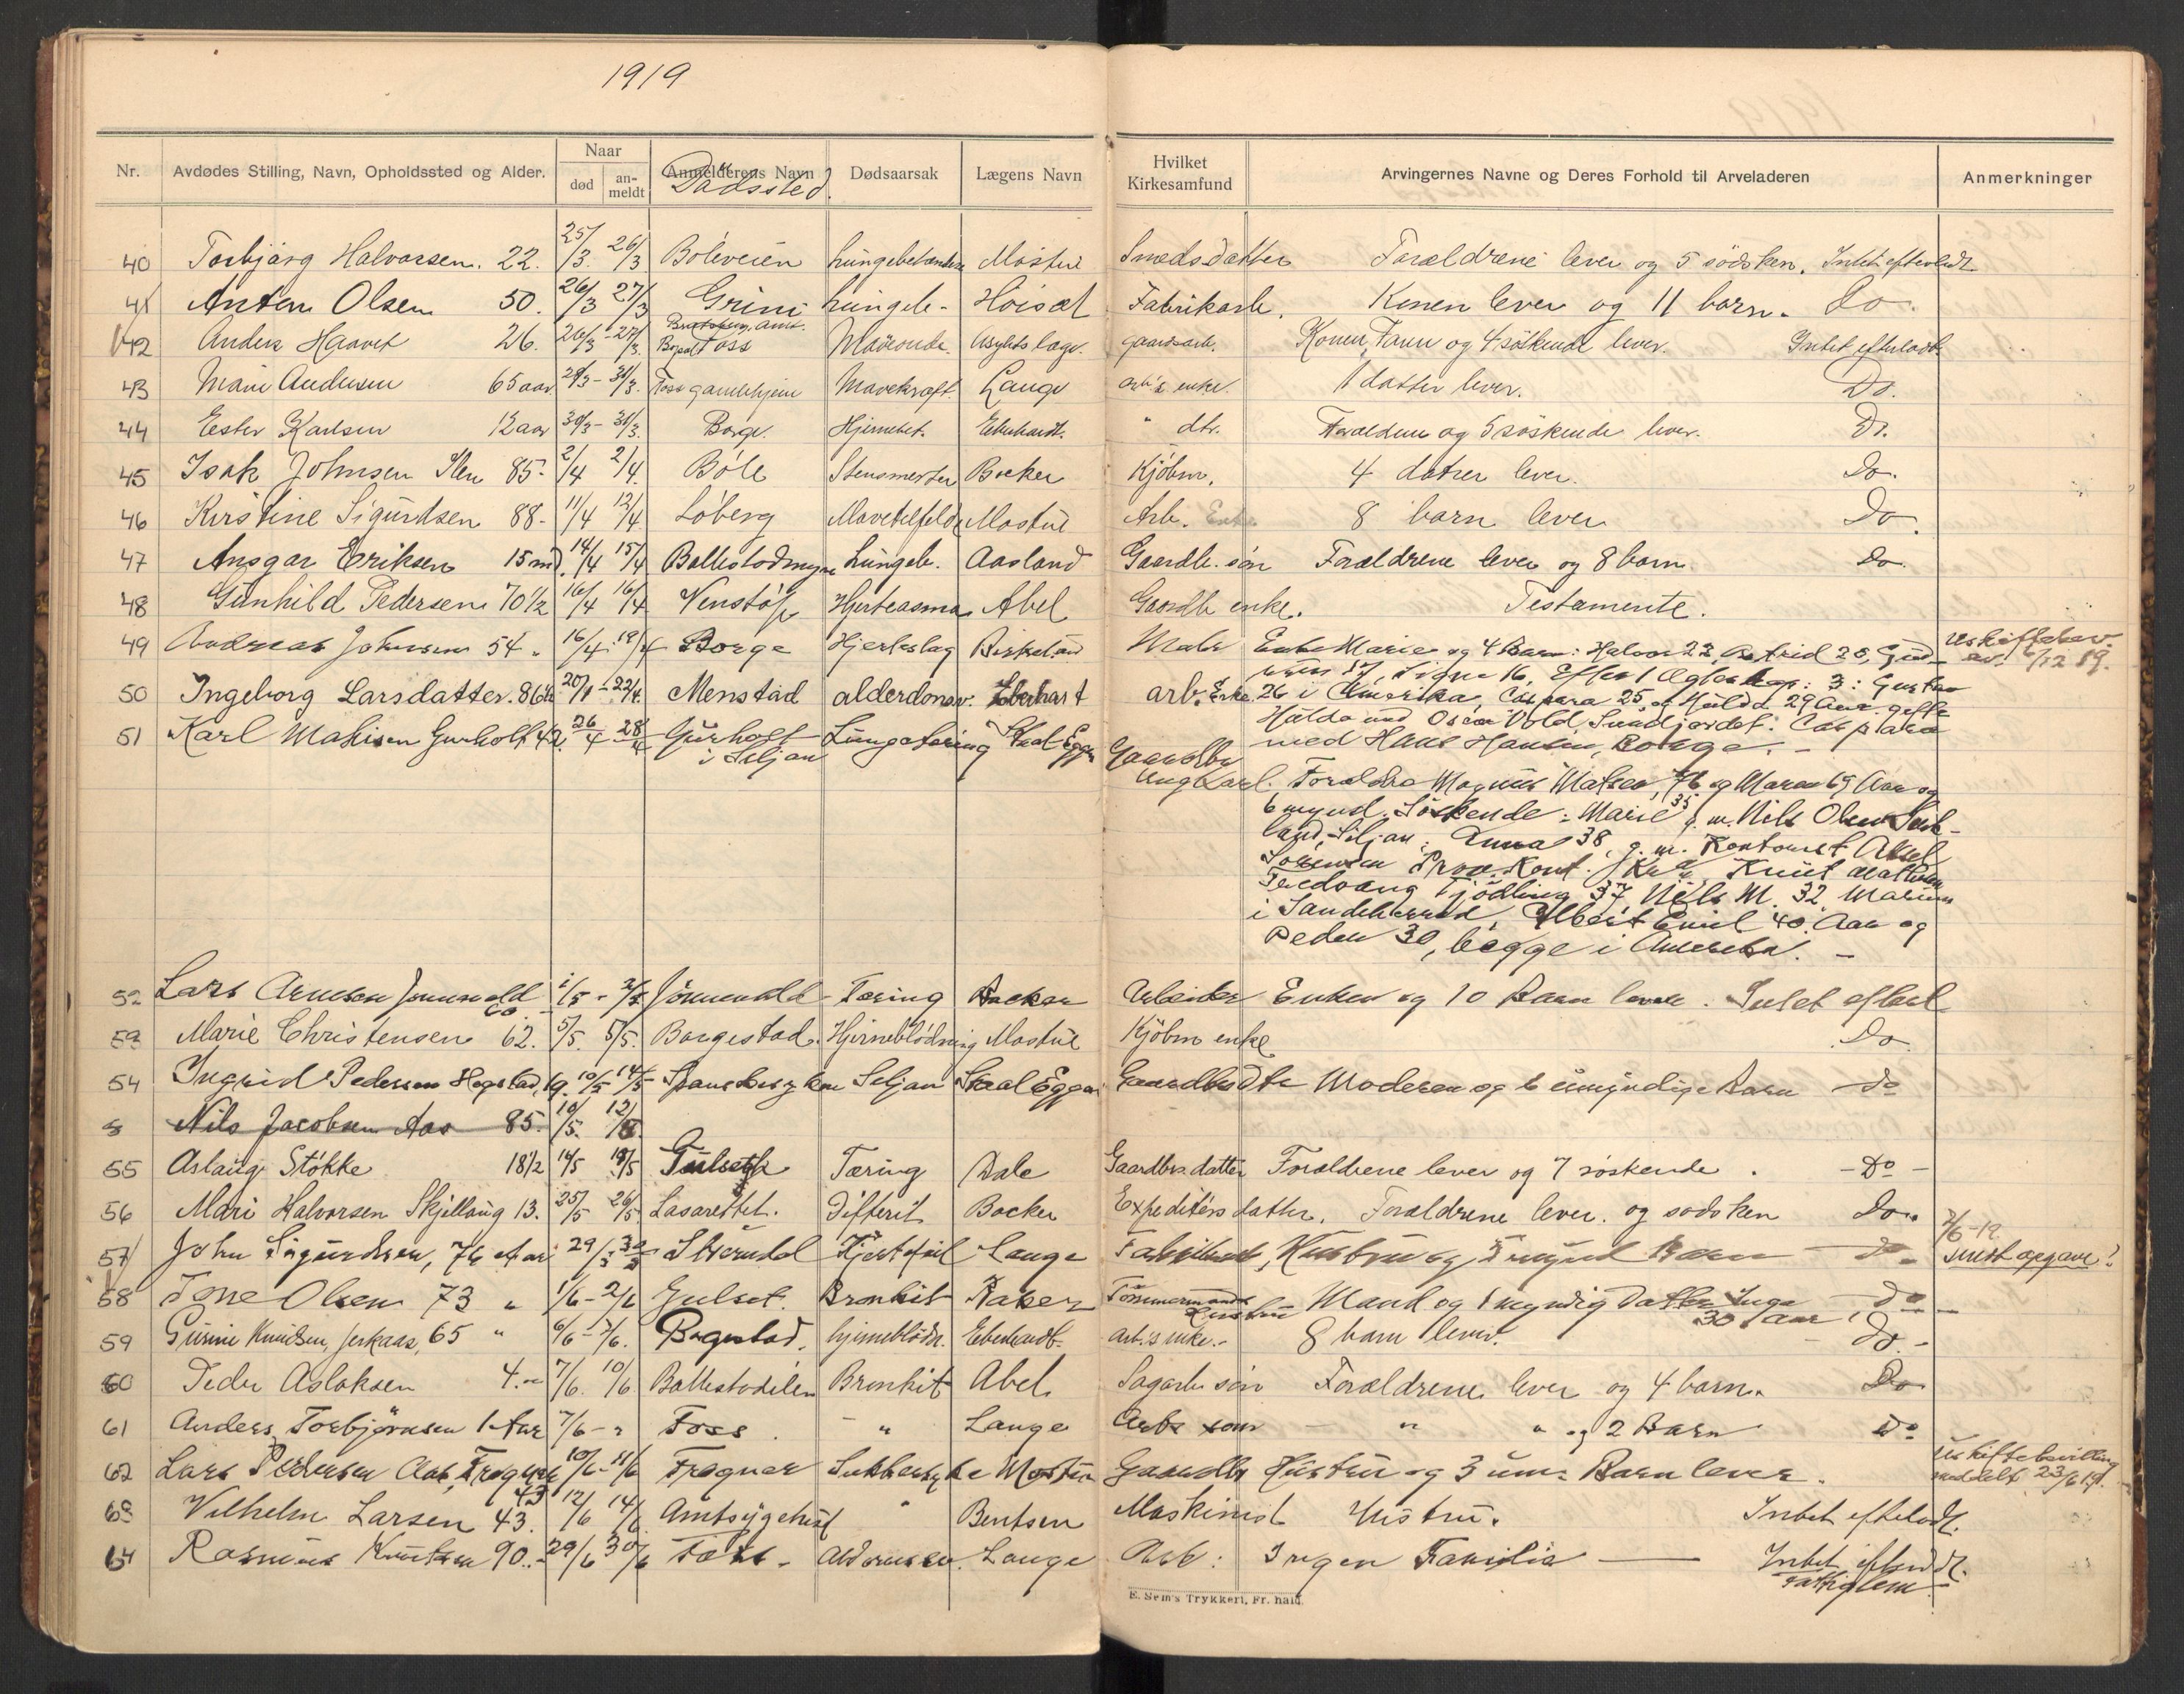 1919
Nr. Avdødes Stilling, Navn, Opholdssted og Alder. Naar død an-meldt Anmelderens Navn Dødssted. Dødsaarsak Lægens Navn Hvilket Kirkesamfund Arvingernes Navne og Deres Forhold til Arveladeren Anmerkninger
40 Torbjørg Halvorsen. 22. 25/3. 26/3 Böleveien Mostue Smedsdatter Forældrene lever og 5 södsken. Intet efterladt
41 Anton Olsen 50. 26/3 27/3 Grini Lungebe- Höisæt Fabrikarb. Konen lever og 11 barn. Do.
42 Anders Haavet 26. 26/3 - 27/3. Foss Asylets læge. gaardsarb. Konen, og 4 söskende lever. Intet efterladt
43 Marie Andersen 65 aar 29/3 - 31/3. Foss gamlehjem Mavekræft. Lange arb's enke. 1 datter lever. Do.
44 Ester Karlsen 12 aar 30/3 - 31/3. Borge. Hjernebet. Eberhardt. " dtr. Forældrene og 5 söskende lever. Do.
45 Isak Johnsen 85. 2/4 2/4. Böle Bocker Kjöbm. 4 døtrer lever. Do.
46 Kirstine Sigurdsen 88- 11/4 12/4. Löberg Mostue Arb. Enke 8 barn lever Do.
47 Ansgar Eriksen 15 md. 14/4 15/4 Lungebe. Aasland Gaardbr. sön Forældrene lever og 8 barn Do.
48 Gunhild Pedersen 70 1/2 16/4 16/4 Venstöp Hjerteasma Abel Gaardbr enke. Testamente.
49 Andreas Johnsen 54. 16/4 19/4 Borge Hjerteslag Birkeland Maler Enke Marie og 4 Barn: Halvor 22, Astrid 20, Gud-
run 17, Signe 16, Efter 1 Ægteskap: 3: Gustav
50 Ingeborg Larsdatter. 86 - 22/4. Menstad Eberhart arb. Enke 26 i Amerika, Caspara 25, og Hulda 29 Aar. gifte
Hulda med Oscar Vold, Sundjordet. Caspara
51 Karl Gurholt 42. 26/4 28/4 Gurholt i Siljan Lungetæring med Hans Hansen, Borge. -
Gaardbr
Ungkarl. Forældre Magnus Matsen, 76 og Maren 69 Aar og
6 mynd. Söskende: Marie 35 g. m. Nils Olsen
Siljan; Anna 38, g. m. Kontorist Aksel
Knut
Tjödling 37 Nils M. 32
i Sandeherred, Albert Emil 40. Aar og
Peder 30, begge i Amerika. -
52 Lars Arnesen Jönnevald 60. 1/5 - 2/5 Jönnevald Tæring Backer Arbeider Enken og 10 Barn lever. Intet efterl
53 Marie Christensen 62. 5/5. 5/5. Borgestad. Hjerneblödning Mostue Kjöbm enke Do.
54 Ingrid Pedersen Hogstad, 19. 10/5 14/5 Siljan Gaardbr dtr Moderen og 6 umyndige Barn do
Nils Jacobsen Aas 85. 10/5. 12/5.
55 Aslaug Stokke 18 1/2 14/5 19/5 Gulset Tæring Dale Gaardbr. datter Forældrene lever og 7 söskende. - Do -
56 Mari Halvorsen Skjellaug 13. 25/5 26/5 Lasarettet. Difterit Bocker Expeditörs datter. Forældrene lever. og södsken Do.
57 John Sigurdsen, 76 29/5 30/5 Lange Hustru og Barn do 2/6-19
58 Tone Olsen 73 " 1/6 - 2/6 Gulset. Bronkit Tömmermands Hustru Mand og 1 myndig Datter Inga 30 Aar, do -
59 Gurine Knudsen, 65 " 6/6 - 7/6. hjerneblödn. Eberhardt. arb.'s enke. 8 barn lever. Do. -
60 Peder Aslaksen 4. 7/6. 10/6 Bronkit Abel. Sagarb. sön Forældrene lever og 4 barn. Do
61 Anders Torbjørnsen 1 Aar 7/6 - " Foss. - " Lange Arbs sön - " " og 2 Barn Do
62 Lars Pedersen Aas, Frogner 43 10/6 - 11/6 Frogner Sukkersyke Mostue Gaardbr Hustru og 3 um. Barn lever. Uskiftebevilling meddelt 23/6 19.
63 Vilhelm Larsen 43. 12/6 14/6. Amtsygehus " Bentsen Maskinist Hustru. Intet efterladt.
64 Rasmus Knutsen 90. 29/6 30/6 Foss. Lange Arb: Ingen Familie Intet efterladt.
Fattiglem
E. Sem's Trykkeri, Fr. hald.